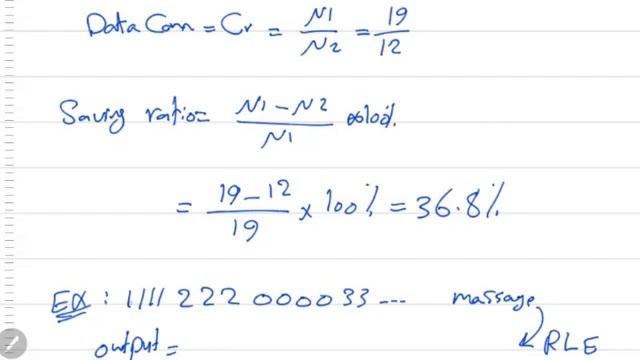 Data Com = Cr = N1/N2 = 19/12
Saving ratio = (N1 - N2)/N1 100%
= (19 - 12)/19 × 100% = 36.8%
EX : 1111 222 0000 33 --- massage
output = RLE